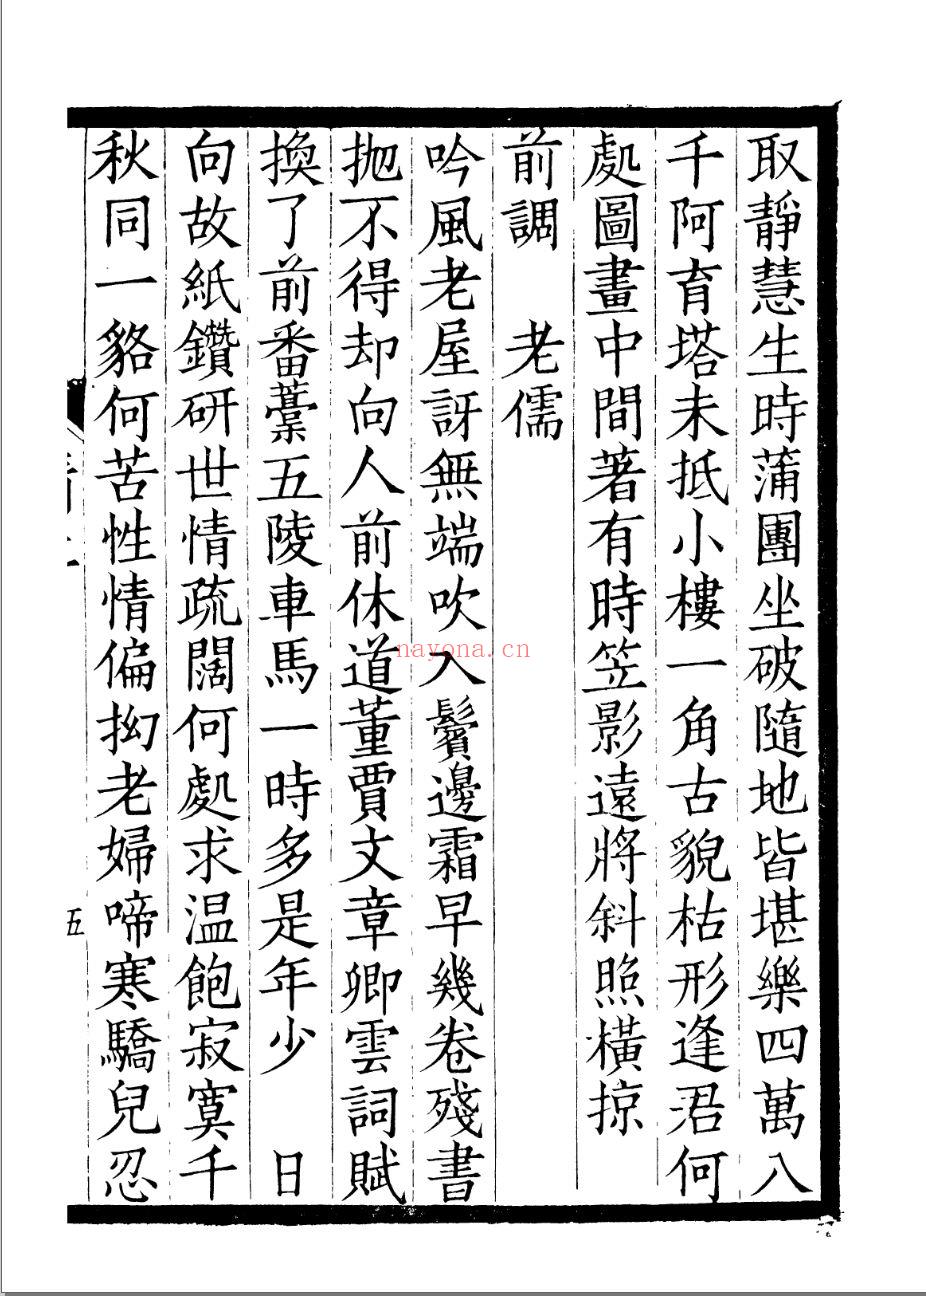 取靜慧生時蒲團坐破隨地皆堪樂四萬八
千阿育塔未抵小樓一角古貌枯形逢君何
處圖畫中間著有時笠影遠將斜照橫掠
前調　老儒
吟風老屋訝無端吹入鬢邊霜早幾卷殘書
拋不得却向人前休道董賈文章卿雲詞賦
換了前番藁五陵車馬一時多是年少　日
向故紙鑽研世情疏闊何處求温飽寂寞千
秋同一貉何苦性情偏拗老婦啼寒驕兒忍
五
nayona.cn